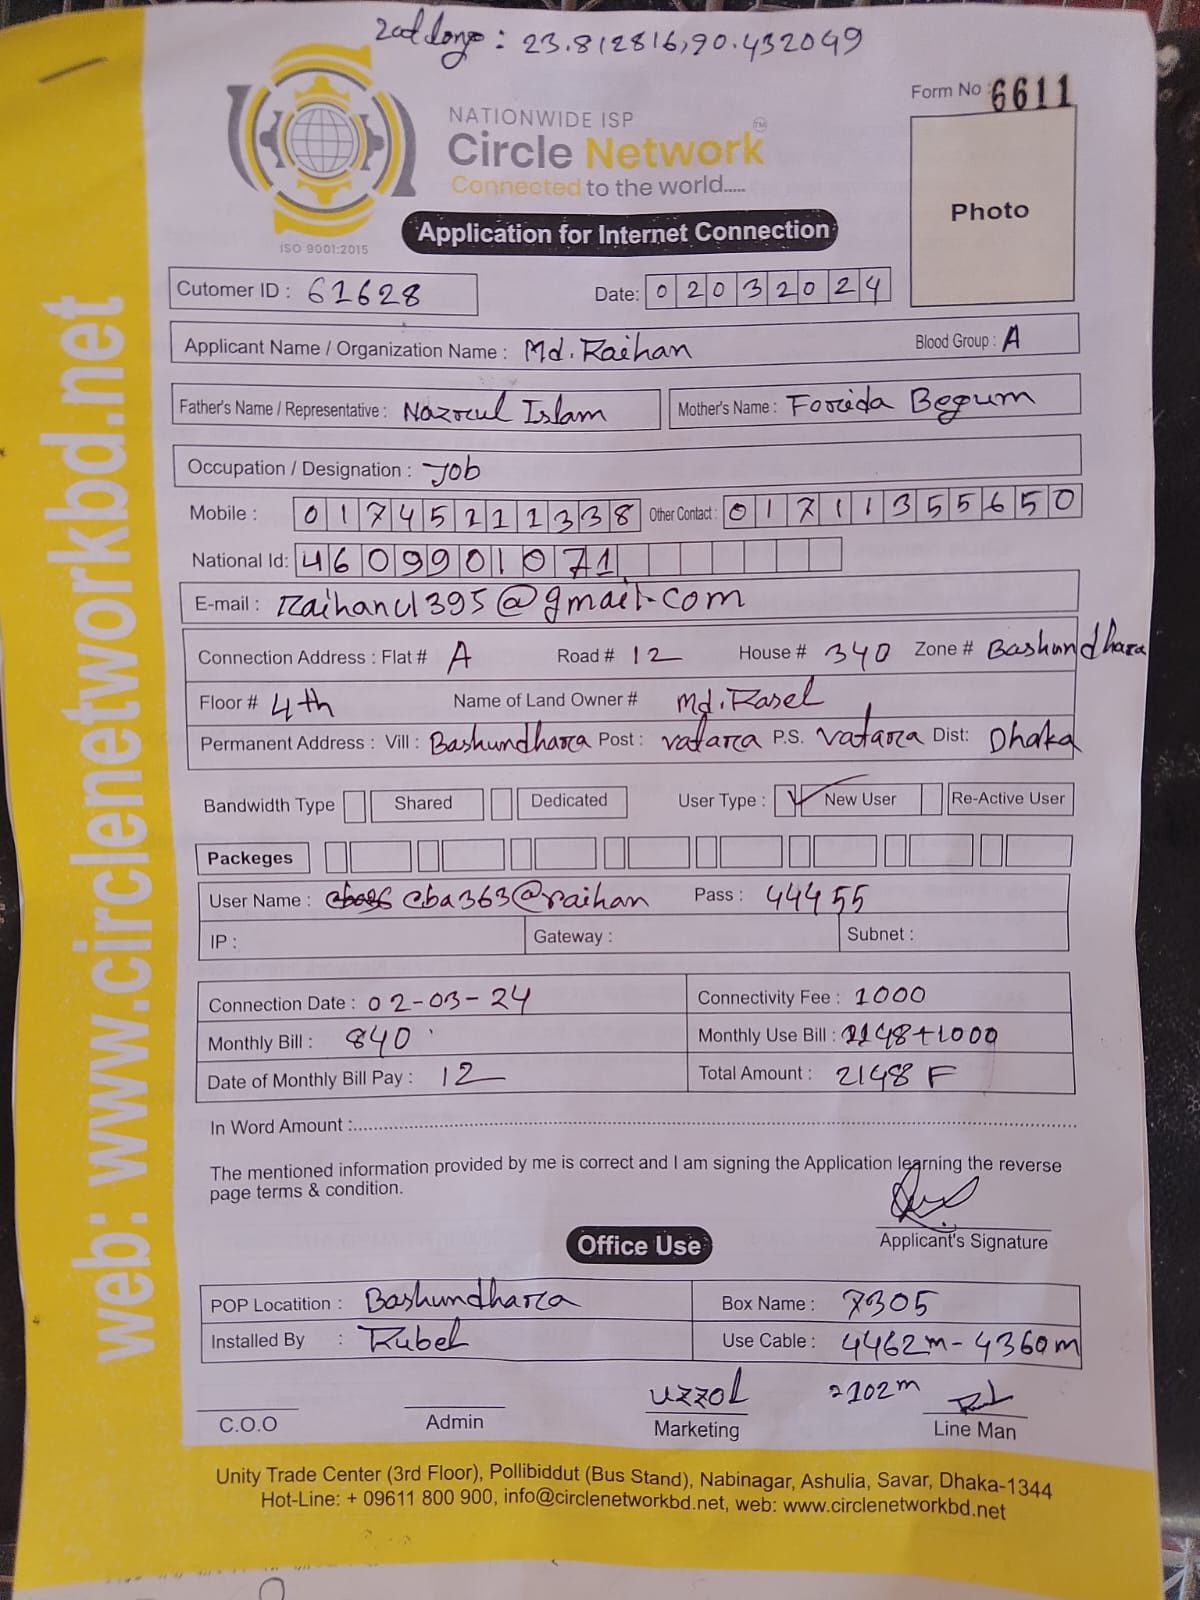 : 23.812816,90.432049
Form No : 6611
NATIONWIDE ISP
Circle Network TM
Connected to the world.....
Photo
ISO 9001:2015
Application for Internet Connection
Cutomer ID : 61628
Date: 02032024
Applicant Name / Organization Name : Md. Raihan
Blood Group : A
Father's Name / Representative : Nazrul Islam
Mother's Name : Forida Begum
Occupation / Designation : Job
Mobile : 01745211338
Other Contact : 01711355650
National Id: 4609901071
E-mail : @gmail.com
Connection Address : Flat # A Road # 12 House # 340 Zone # Bashundhara
Floor # 4th Name of Land Owner # Md. Rasel
Permanent Address : Vill : Bashundhara Post : vatara P.S. vatara Dist: Dhaka
Bandwidth Type Shared Dedicated User Type : New User Re-Active User
Packeges
User Name : cba363@raihan Pass : 44455
IP : Gateway : Subnet :
Connection Date : 02-03-24
Connectivity Fee : 1000
Monthly Bill : 840
Monthly Use Bill : 1148+1000
Date of Monthly Bill Pay : 12
Total Amount : 2148 F
In Word Amount :
The mentioned information provided by me is correct and I am signing the Application learning the reverse
page terms & condition.
Applicant's Signature
Office Use
POP Locatition : Bashundhara
Box Name : 7305
Installed By : Rubel
Use Cable : 4462m-4360m
=102m
C.O.O
Admin
Uzzol
Marketing
Line Man
Unity Trade Center (3rd Floor), Pollibiddut (Bus Stand), Nabinagar, Ashulia, Savar, Dhaka-1344
Hot-Line: + 09611 800 900, info@circlenetworkbd.net, web: www.circlenetworkbd.net
web: www.circlenetworkbd.net